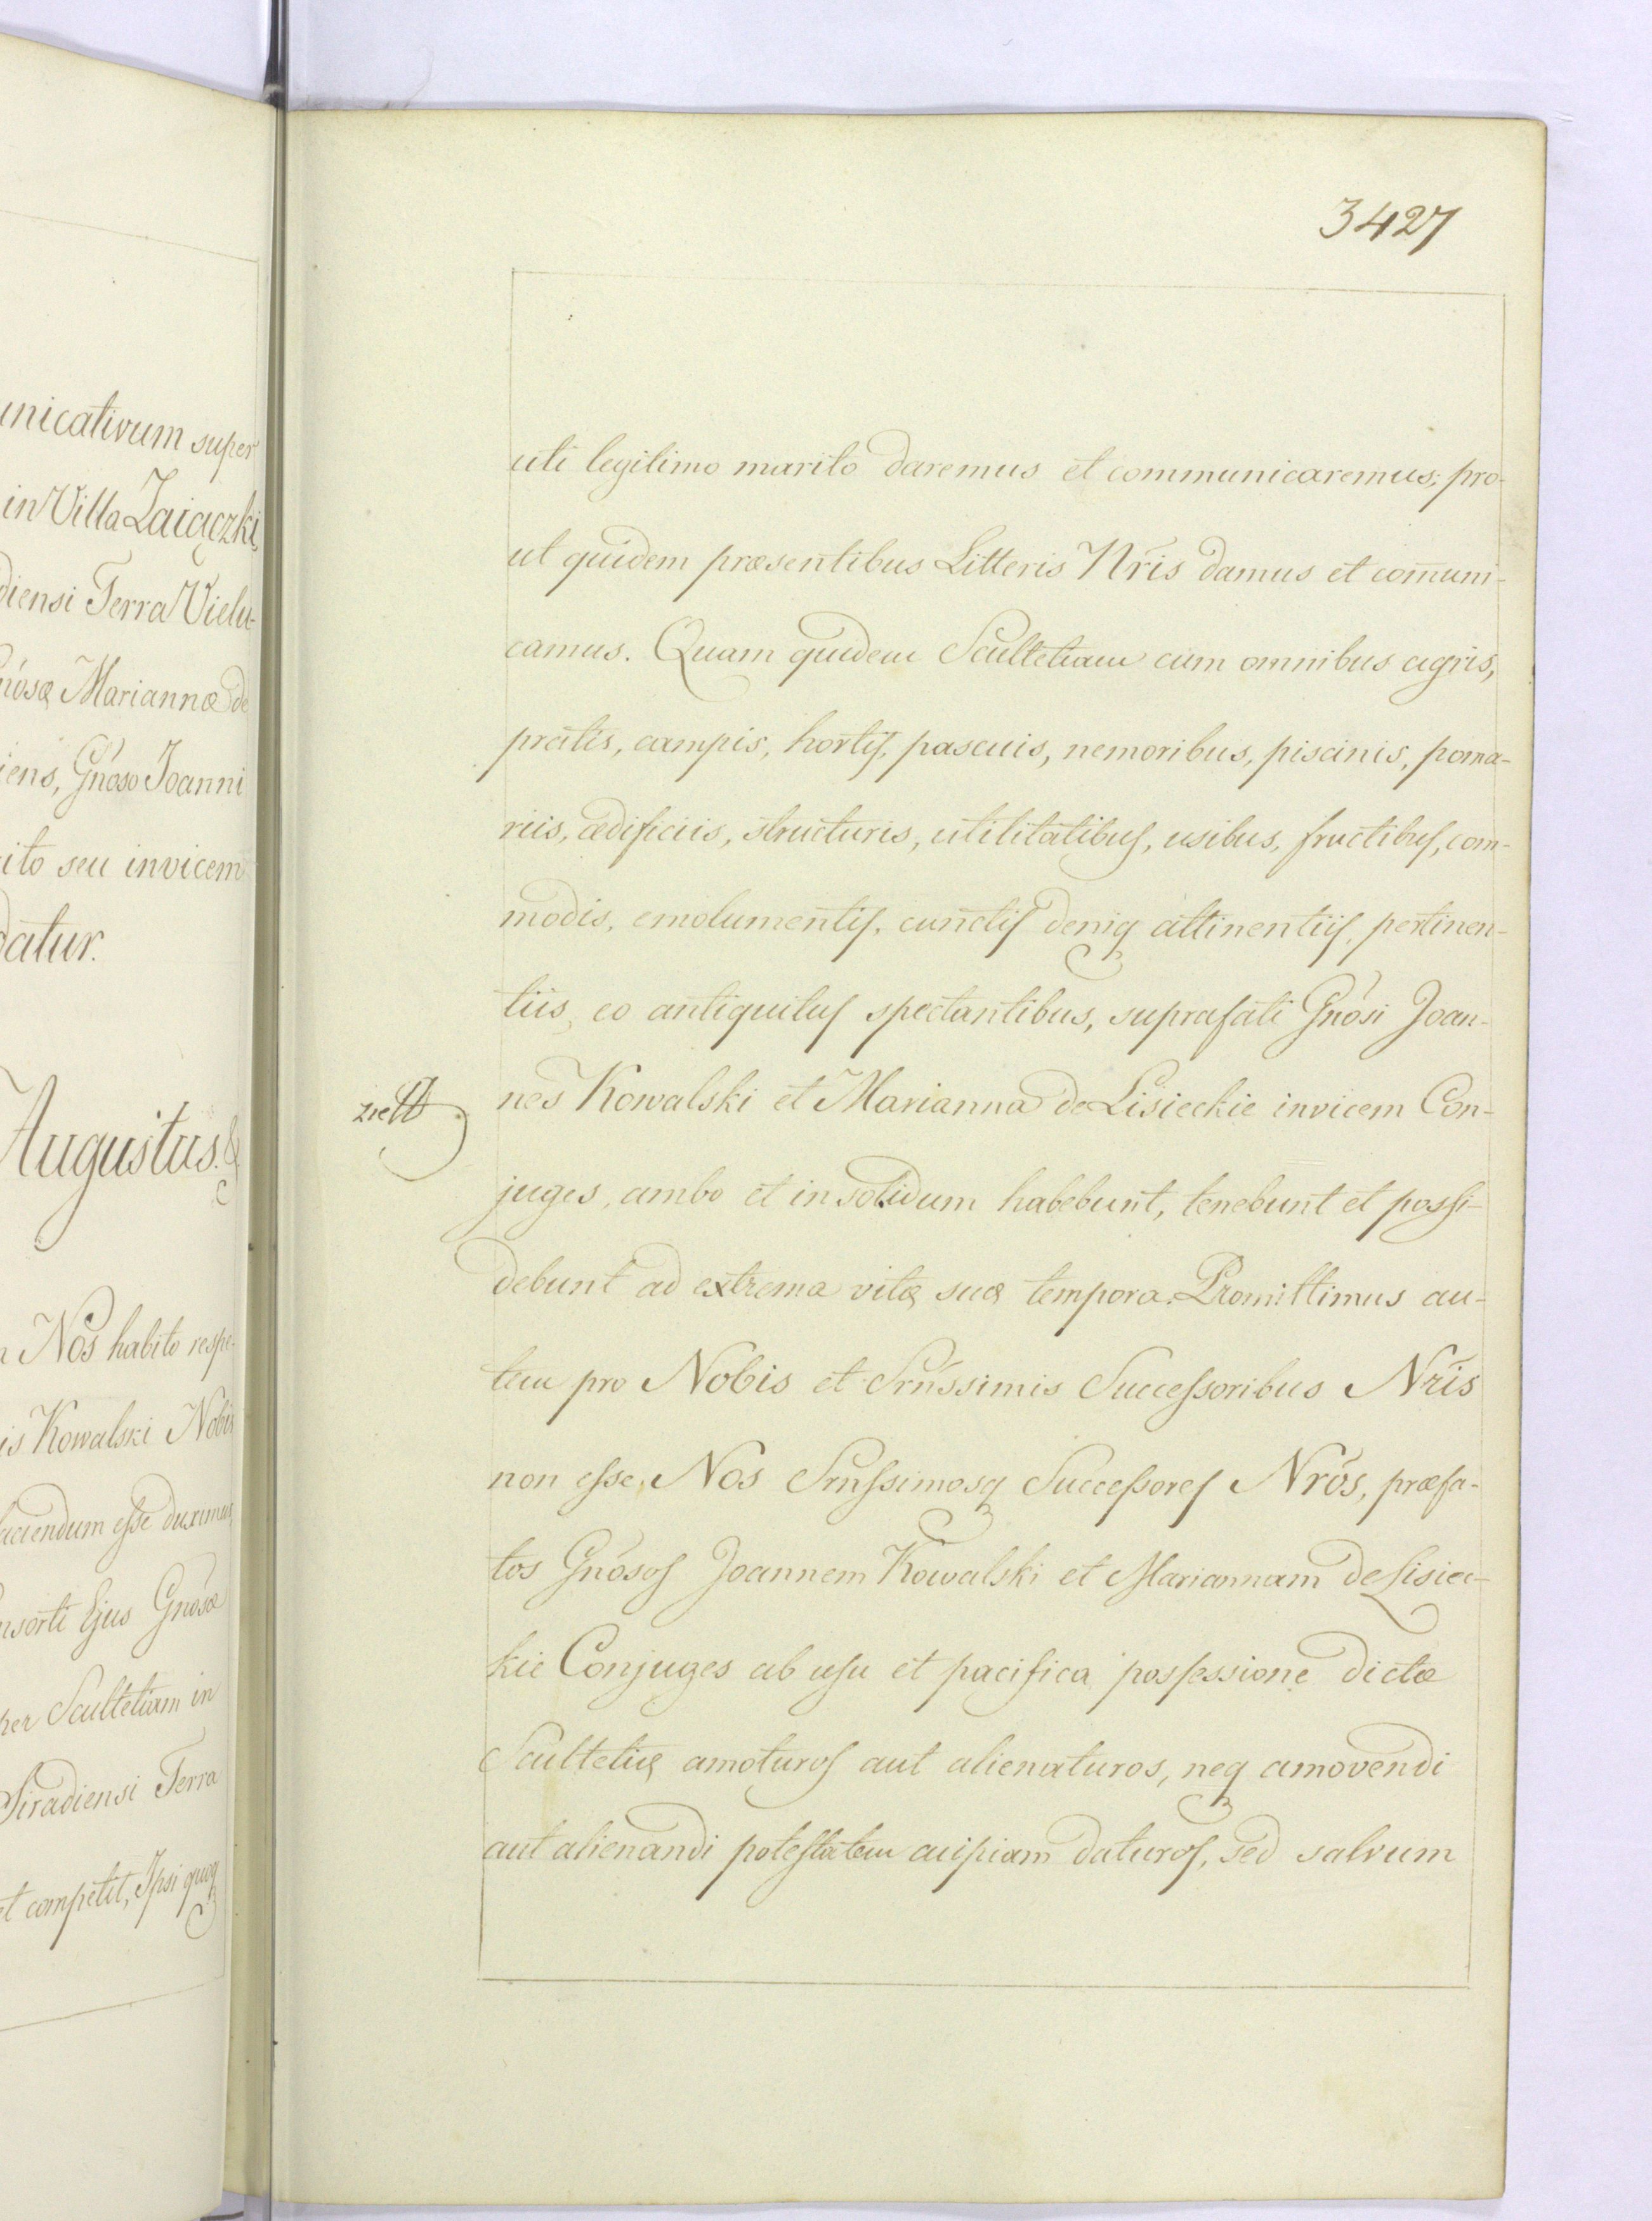 unicativum super
in Villa Zaiączki,
diensi Terra Vielu-
nósæ Mariannæ de
iens, Gnoso Joanni
ito seu invicem
datur.
Augustus. &
Nos habito respe-
is Kowalski Nobis
aciendum esse duximus
nsorti Ejus Gnosæ
per Scultetiam in
Siradiensi Terra
et competit, Ipsi quoq
3427
uti legitimo marito daremus et communicaremus; pro-
ut quidem præsentibus Litteris Nris damus et com̄uni-
camus. Quam quidem Scultetiam cum omnibus agris,
pratis, campis, hortis, pascuis, nemoribus, piscinis, poma-
riis, ædificiis, structuris, utilitatibus, usibus, fructibus, com-
modis, emolumentis, cunctis deniq attinentiis, pertinen-
tiis, eo antiquitus spectantibus, suprafati Gnosi Joan-
nes Kowalski et Marianna de Lisieckie invicem Con-
juges, ambo et in solidum habebunt, tenebunt et possi-
debunt ad extrema vitæ suæ tempora. Promittimus au-
tem pro Nobis et Srnssimis Successoribus Nris
non esse, Nos Srnssimosq Successores Nros, præfa-
tos Gnosos Joannem Kowalski et Mariannam de Lisiec-
kie Conjuges ab usu et pacifica possessione dictæ
Scultetiæ amoturos aut alienaturos, neq amovendi
aut alienandi potestatem cuipiam daturos, sed salvum